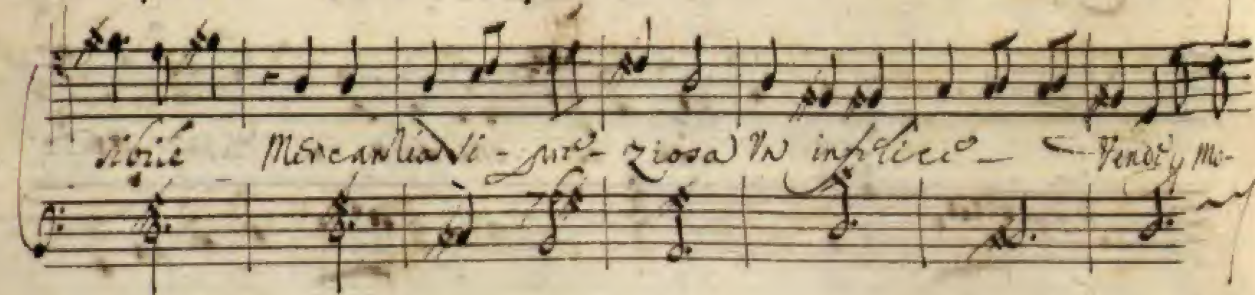 Nobile Mercantia Si - pre - ziosa Un infelice - Vende, e Mo-